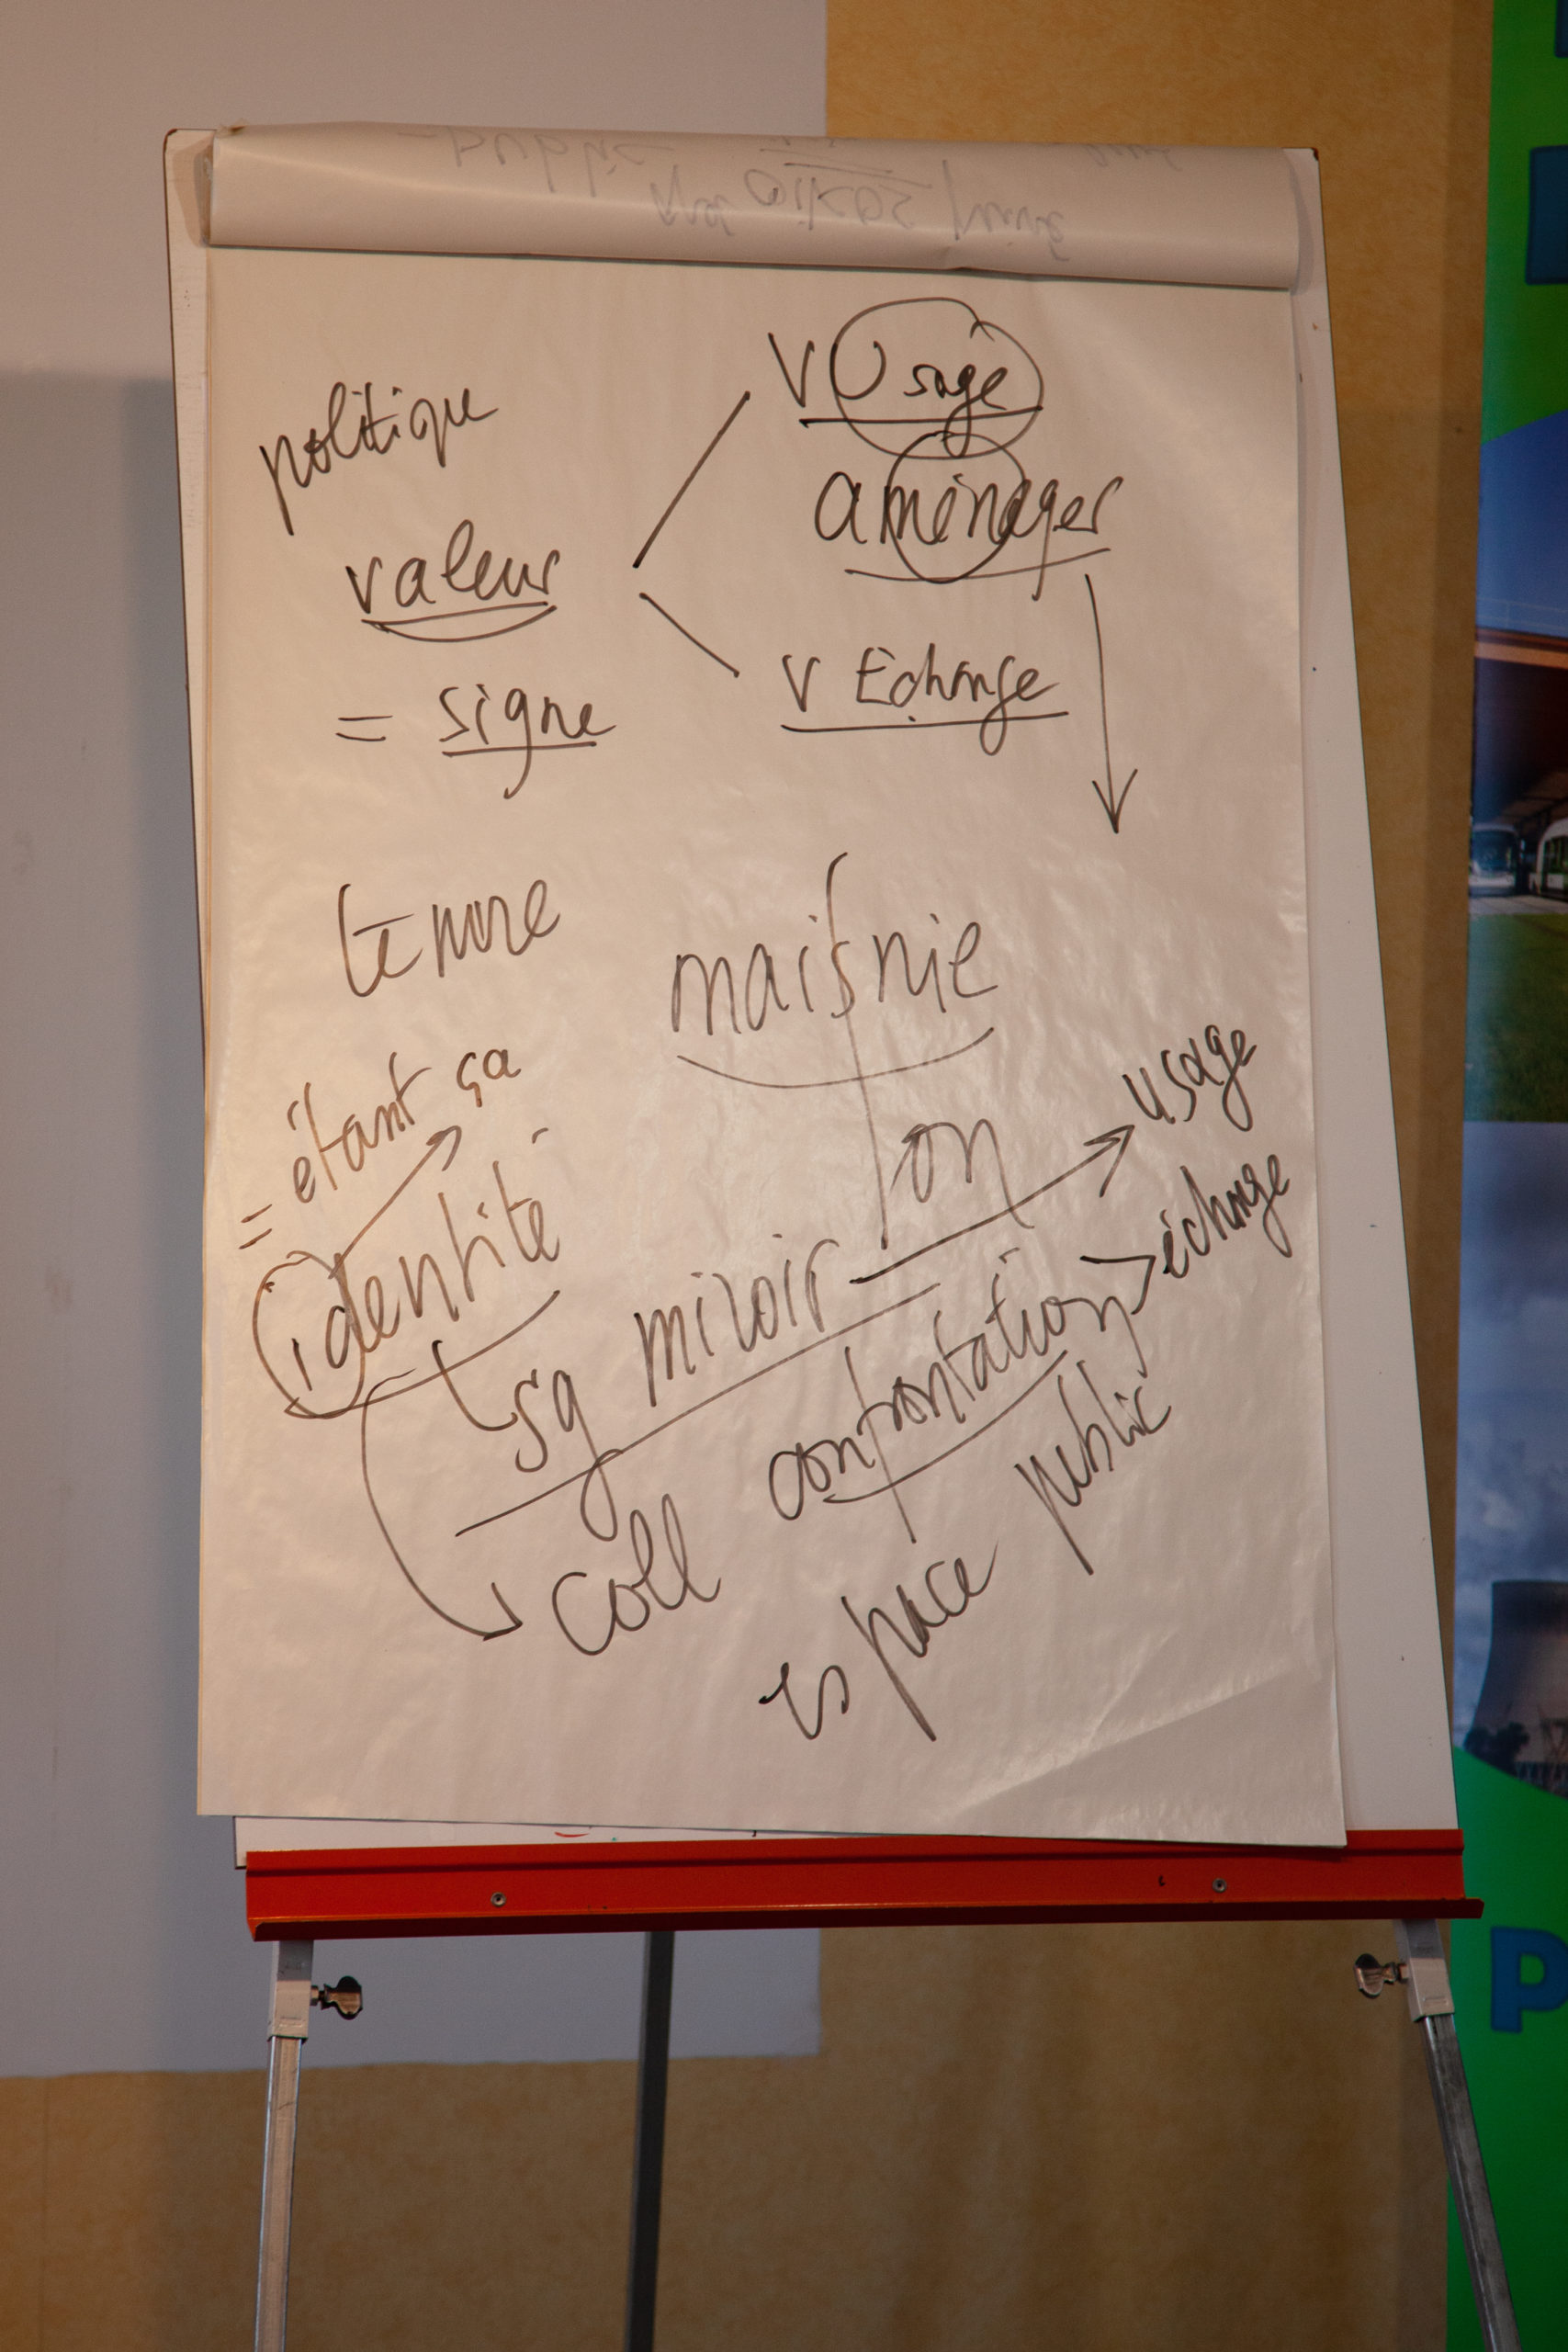 politique
V Usage
aménager
valeur
V Echange
= signe
tenure
maisnie
on
= étant ça
identité
sg miroir
usage
coll confrontation > échange
espace public
P